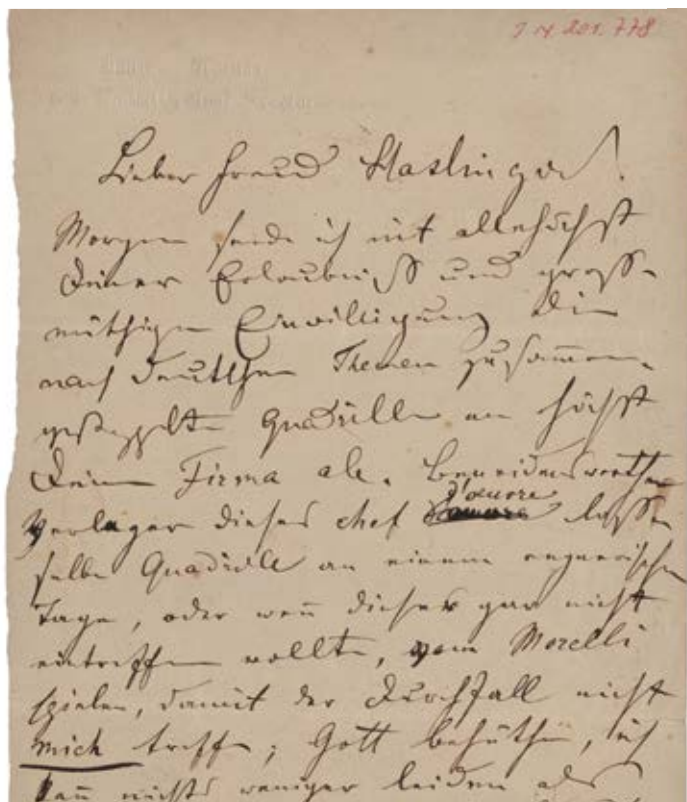 I N 201.778
Lieber Freund Haslinger!
Morgen sende ich mit allerhöchst
Deiner Erlaubniß und groß-
müthigen Einwilligung die
nach deutschen Themen zusammen-
gestoppelte Quadrille an höchst
Deine Firma ab. Beneidenswerther
Verleger dieses chef d'œuvre lasse
selbe Quadrille an einem regnerischen
Tage, oder weñ dieser gar nicht
eintreffen wollte, vom Morelli
spielen, damit der Durchfall nicht
mich treffe; Gott behüthe, ich
kañ nichts weniger leiden als